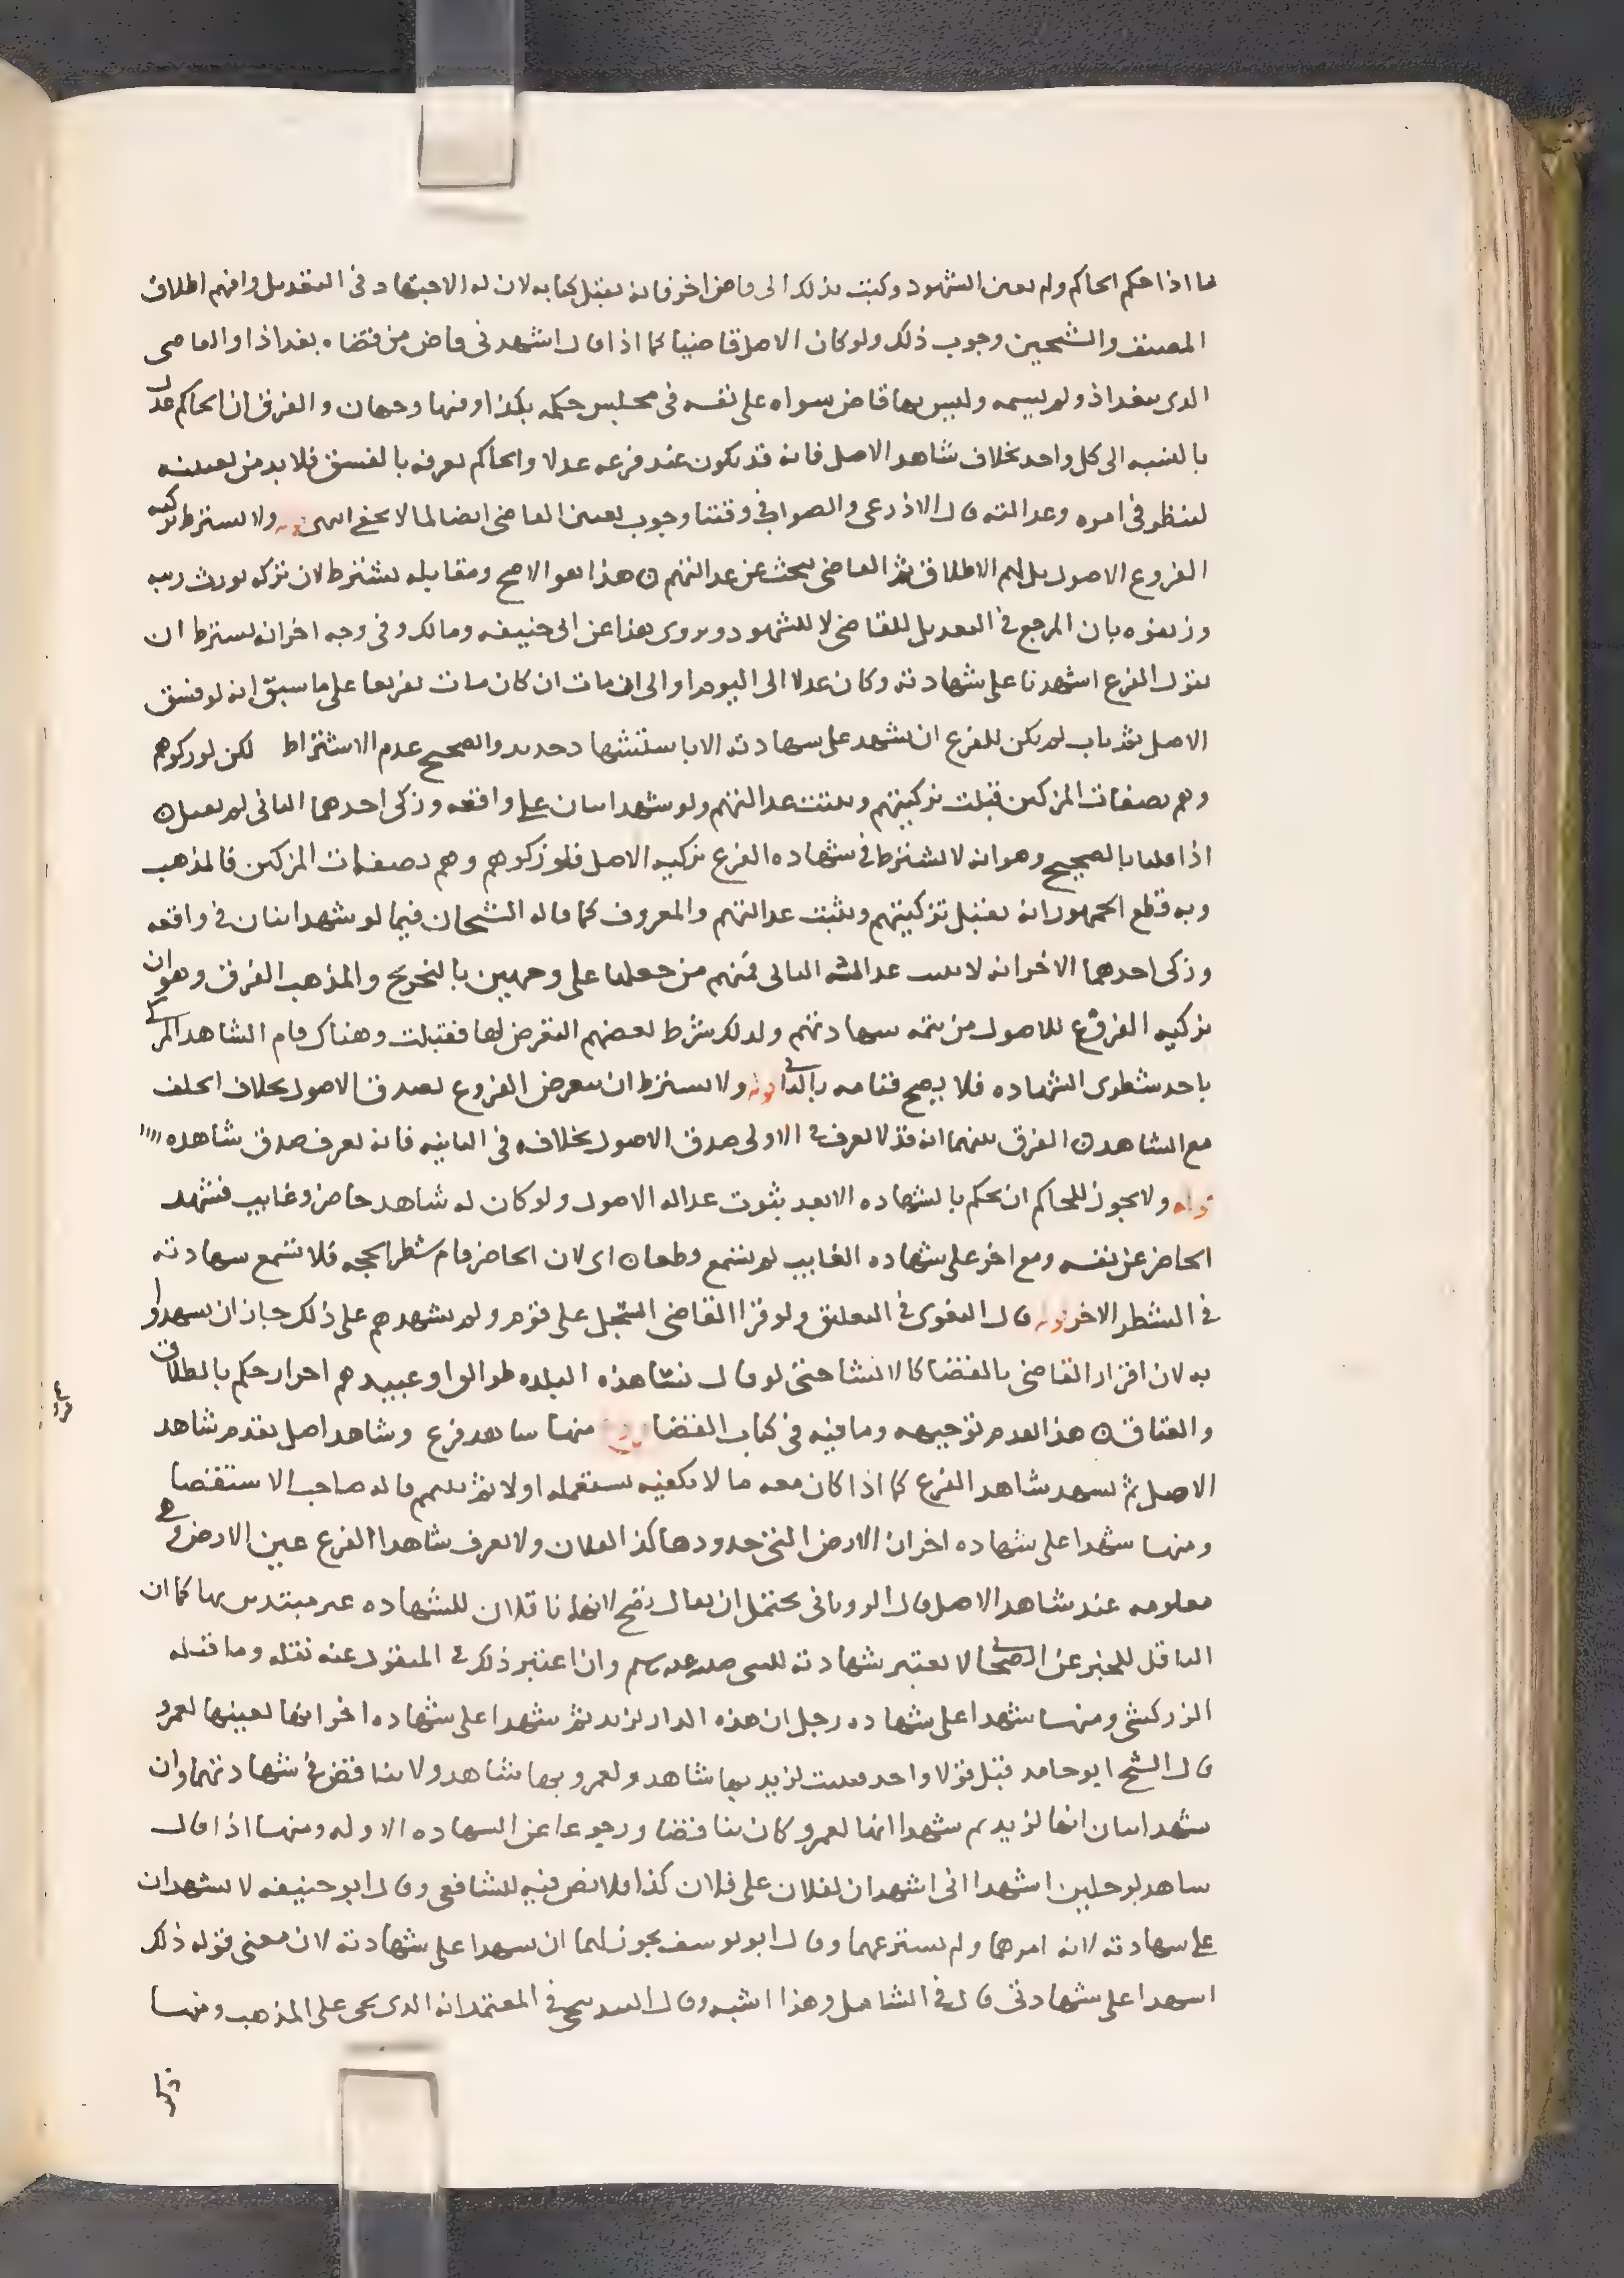 ما اذا حكم الحاكم ولم يعين الشهود وكتب بذلك الى قاض اخر فانه يقبل كتابه لان له الاجتهاد في التعديل وافهم اطلاق
المصنف والشيخين وجوب ذلك ولو كان الاصل قاضيا كما اذا قال اشهدني قاض من قضاه بغداد او القاضي
الذي ببغداد ولم يسمه وليس بها قاض سواه على نفسه في مجلس حكمه بكذا وفيها وجهان والفرق ان الحاكم عدل
بالنسبه الى كل واحد بخلاف شاهد الاصل فانه قد يكون عند فرعه عدلا والحاكم يعرفه بالفسق فلا بد من تعيينه
لينظر في امره وعدالته قال الاذرعي والصواب في وقتنا وجوب تعيين القاضي ايضا لما لا يخفى انتهى قوله ولا يشترط تزكيه
الفروع الاصول بل لهم الاطلاق ثم القاضي يبحث عن عدالتهم هذا هو الاصح ومقابله يشترط لان تركه يورث ريبه
وزيفوه بان المرجع في التعديل للقاضي لا للشهود ويروى هذا عن ابي حنيفه ومالك وفي وجه اخر انه يشترط ان
يقول الفرع اشهدنا على شهادته وكان عدلا الى اليوم او الى ان مات ان كان مات تفريعا على ما سبق انه لو فسق
الاصل ثم تاب لم يكن للفرع ان يشهد على شهادته الا باستشهاد جديد والصحيح عدم الاشتراط لكن لو زكوهم
وهم بصفات المزكين قبلت تزكيتهم وثبتت عدالتهم ولو شهد اثنان على واقعه وزكى احدهما الثاني لم يقبل
اذا قلنا بالصحيح وهو انه لا يشترط في شهاده الفرع تزكيه الاصل فلو زكوهم وهم بصفات المزكين فالمذهب
وبه قطع الجمهور انه يقبل تزكيتهم ويثبت عدالتهم والمعروف كما قاله الشيخان فيما لو شهد اثنان في واقعه
وزكى احدهما الاخر انه لا يثبت عدالته الثاني فمنهم من جعلها على وجهين بالتخريج والمذهب الفرق وهو ان
تزكيه الفروع للاصول من تتمه شهادتهم ولذلك شرط بعضهم التعرض لها فقبلت وهناك قام الشاهد المزكي
باحد شطري الشهاده فلا يصح قيامه بالثاني قوله ولا يشترط ان يتعرض الفروع لصدق الاصول بخلاف الحلف
مع الشاهد الفرق بينهما انه قد لا يعرف في الاولى صدق الاصول بخلافه في الثانيه فانه يعرف صدق شاهده
قوله ولا يجوز للحاكم ان يحكم بالشهاده الا بعد ثبوت عداله الاصول ولو كان له شاهد حاضر وغايب فشهد
الحاضر عن نفسه ومع اخر على شهاده الغايب لم تسمع قطعا اي لان الحاضر قام شطر الحجه فلا تسمع شهادته
في الشطر الاخر قوله قال البغوي في التعليق ولو قرا القاضي السجل على قوم ولم يشهدهم على ذلك جاز ان يشهدوا
به لان اقرار القاضي بالقضا كالانشا حتى لو قال نسا هذه البلده طوالق او عبيدهم احرار حكم بالطلاق
والعتاق هذا تقدم توجيهه وما فيه في كتاب القضا فروع منها شاهد فرع وشاهد اصل يقدم شاهد
الاصل ثم يشهد شاهد الفرع كما اذا كان معه ما لا يكفيه يستعمله اولا ثم يتيمم قاله صاحب الاستقصا
ومنها شهدا على شهاده اخر ان الارض التي حدودها كذا لفلان ولا يعرف شاهدا الفرع عين الارض وهي
معلومه عند شاهد الاصل قال الروياني يحتمل ان يقال تصح لانهما ناقلان للشهاده غير مبتدين بها كما ان
الناقل للخبر عن الصحابي لا يعتبر شهادته للنبي صلى الله عليه وسلم وان اعتبر ذلك في المنقول عنه نقله وما قبله
الزركشي ومنها شهدا على شهاده رجل ان هذه الدار لزيد ثم شهدا على شهاده اخر انها بعينها لعمرو
قال الشيخ ابو حامد قبل قولا واحد فيثبت لزيد بها شاهد ولعمرو بها شاهد ولا يتناقض في شهادتهما وان
شهد اثنان انها لزيد ثم شهدا انها لعمرو كان تناقضا ورجوعا عن الشهاده الاوله ومنها اذا قال
شاهد لرجلين اشهدا اني اشهد ان لفلان على فلان كذا فلا نص فيه للشافعي وقال ابو حنيفه لا يشهدان
على شهادته لانه امرهما ولم يسترعهما وقال ابو يوسف يجوز لهما ان يشهدا على شهادته لان معنى قوله ذلك
اشهدا على شهادتي قال في الشامل وهذا اشبه وقال البندنيجي في المعتمد انه الذي يجي على المذهب ومنها